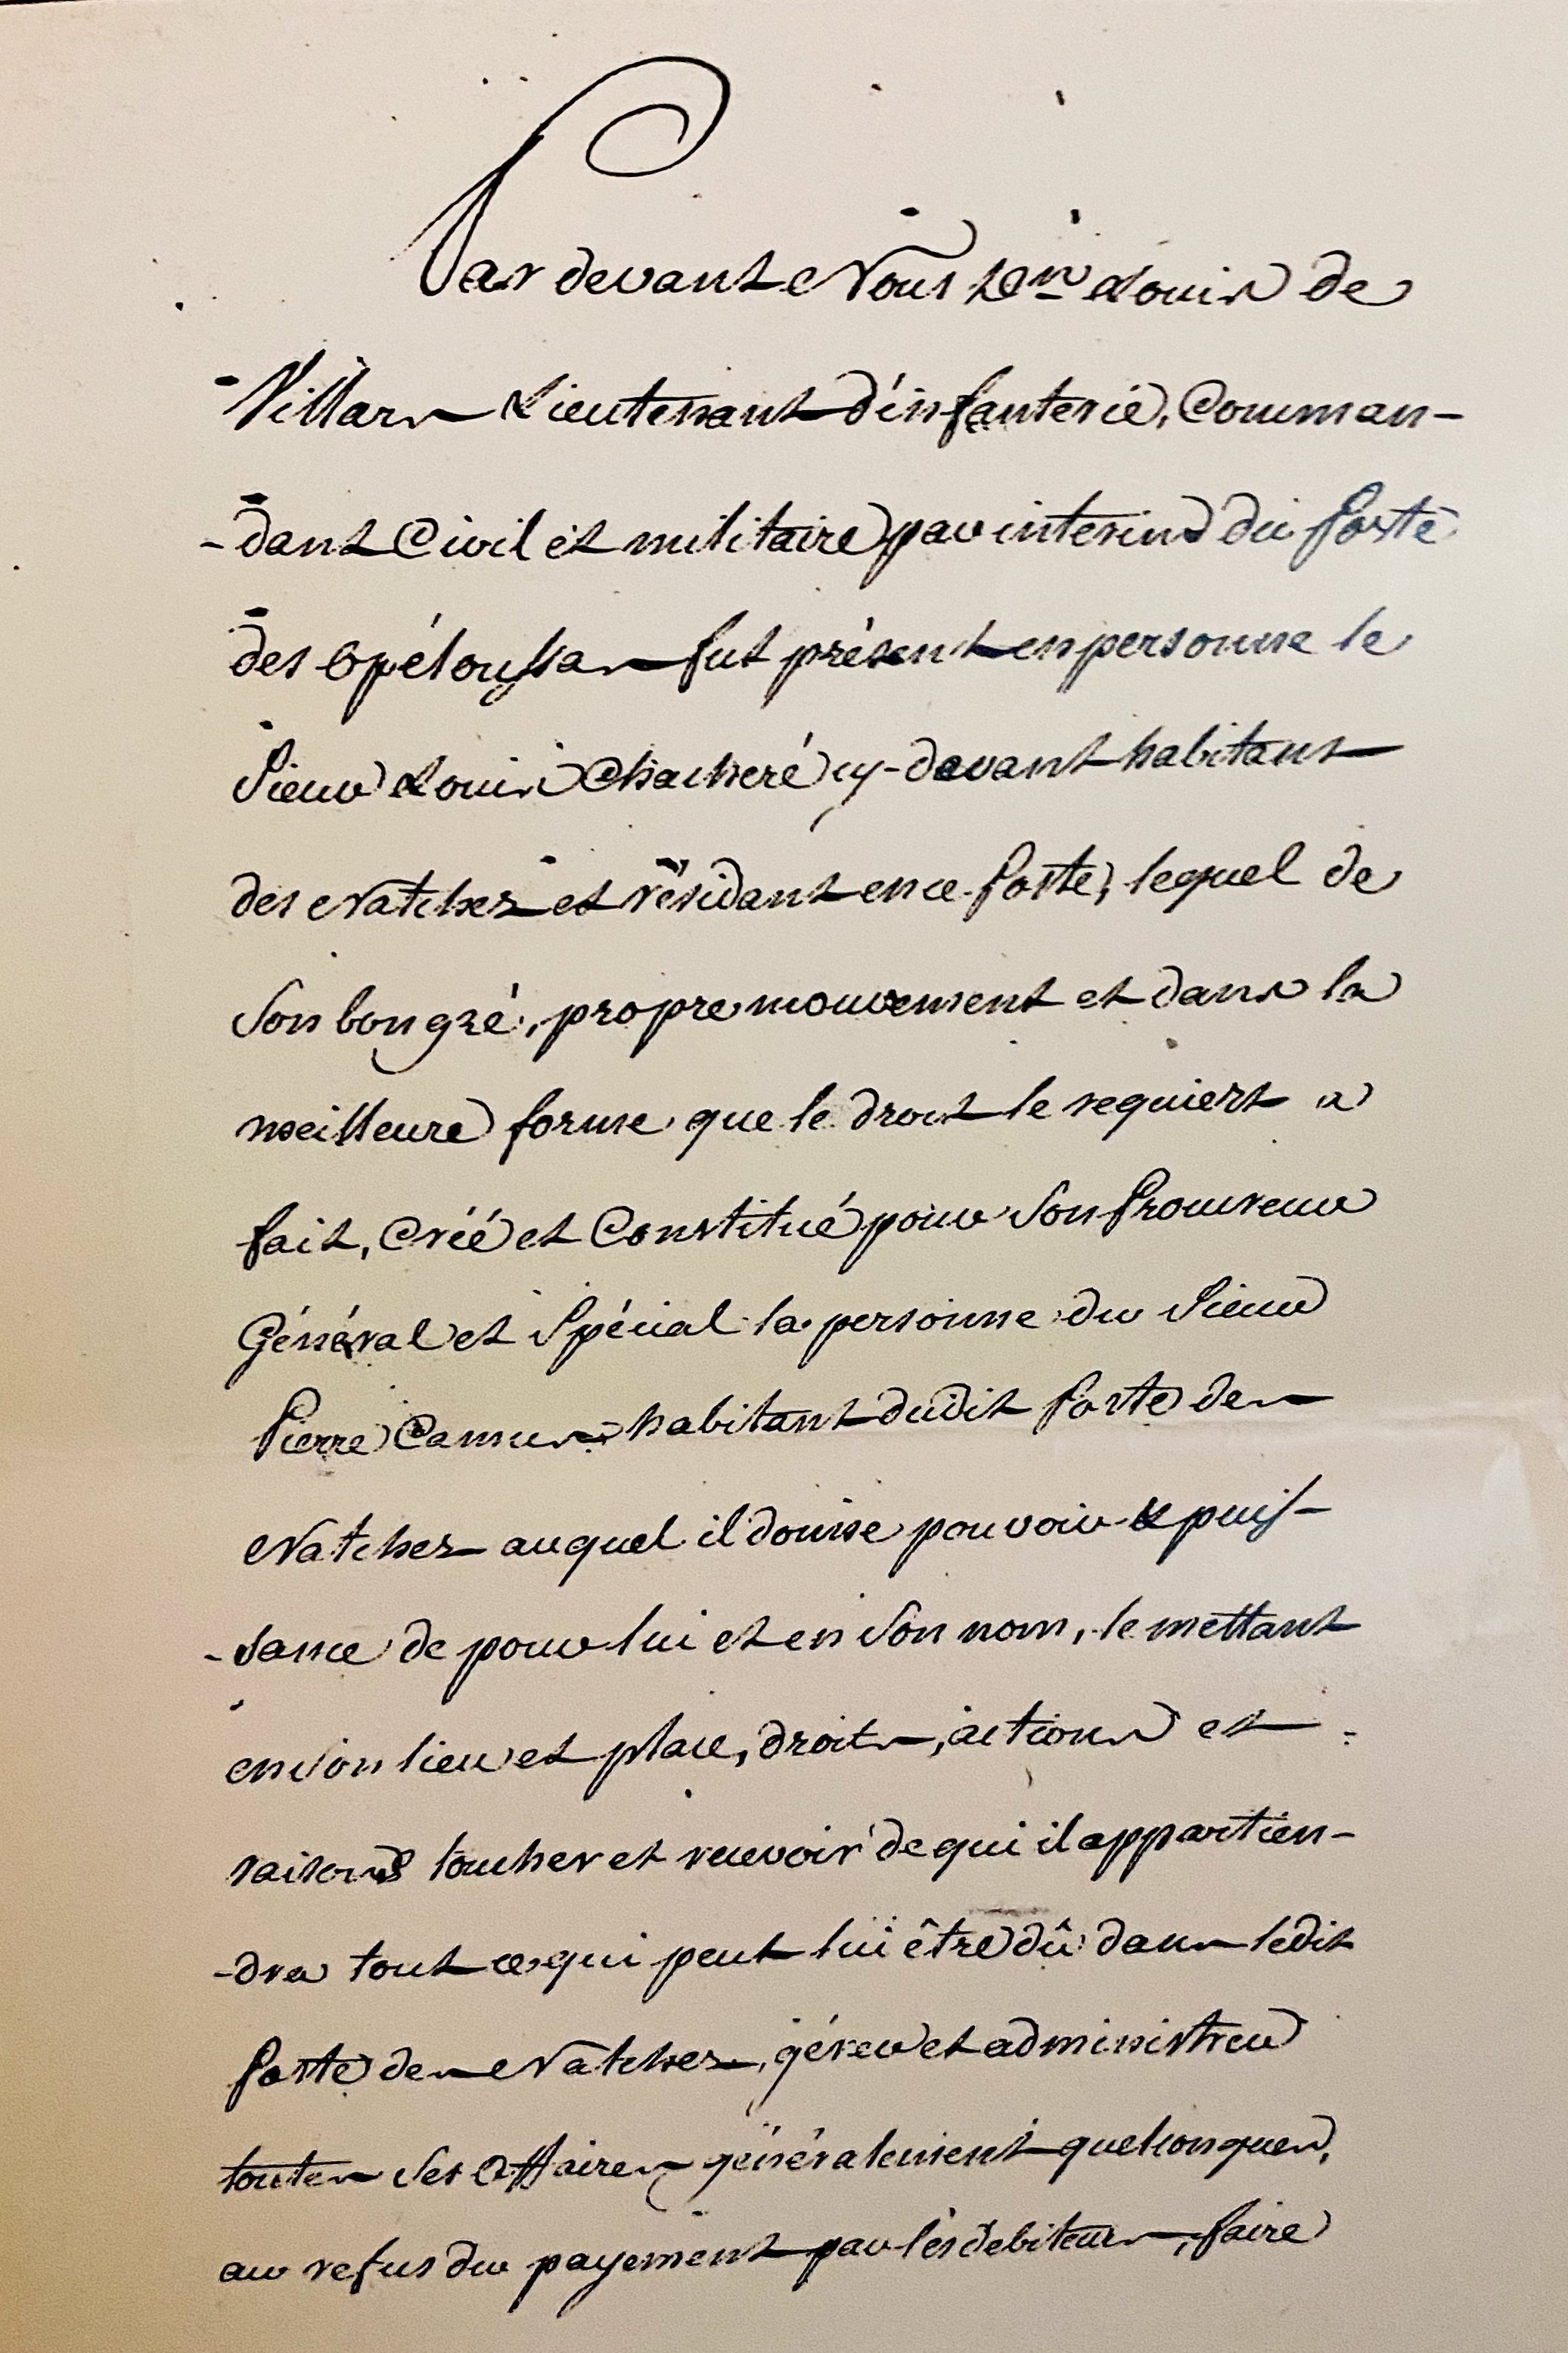 Par devant Nous Dn Louis de
Villars Lieutenant d'infanterie, Comman-
-dant Civil et militaire par interim du Poste
des Opéloussas fut présent en personne le
Sieur Louis Chacheré cy-devant habitant
des Natchez et résidant en ce Poste, lequel de
Son bon gré, propre mouvement et dans la
meilleure forme que le droit le requiert a
fait, Créé et Constitué pour Son Procureur
Général et Spécial la personne du Sieur
Pierre Camus habitant dudit Poste des
Natchez auquel il donne pouvoir & puis-
-sance de pour lui et en Son nom, le mettant
en Son lieu et place, droits, actions et
raisons toucher et recevoir de qui il appartien-
-dra tout ce qui peut lui être dû dans ledit
Poste des Natchez, gérer et administrer
toutes Ses Affaires généralement quelconques,
au refus du payement par les debiteurs, faire